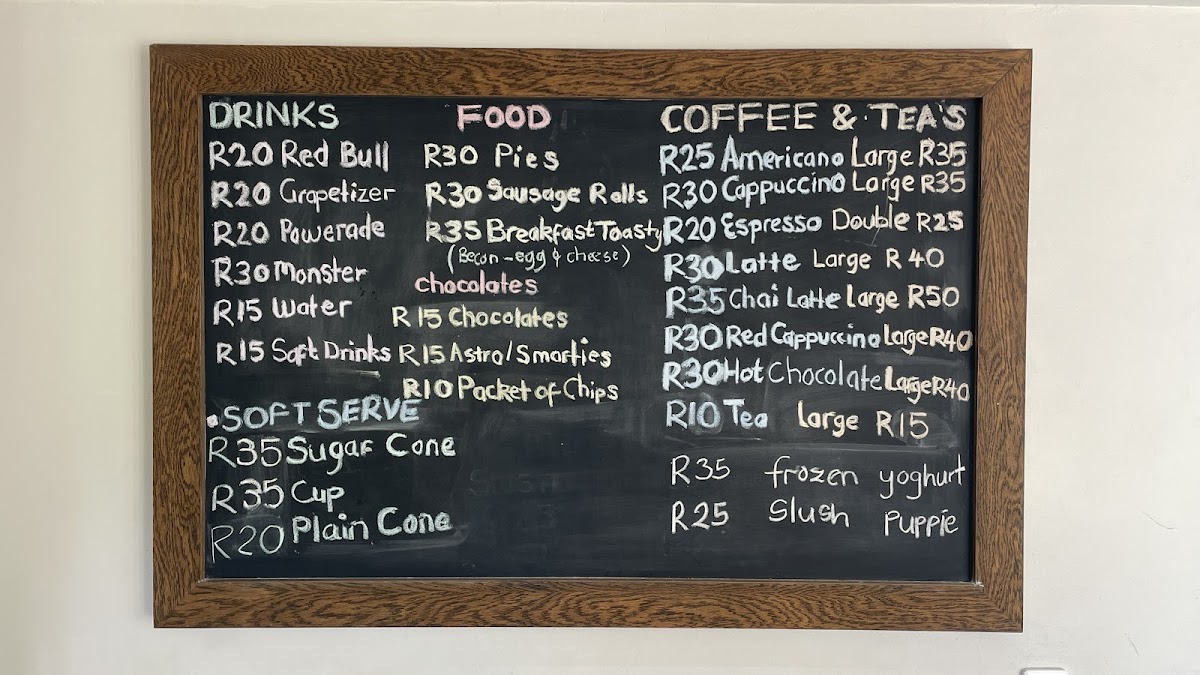 DRINKS
R20 Red Bull
R20 Grapetizer
R20 Powerade
R30 Monster
R15 Water
R15 Soft Drinks
SOFT SERVE
R35 Sugar Cone
R35 Cup
R20 Plain Cone
FOOD
R30 Pies
R30 Sausage Rolls
R35 Breakfast Toasty
(Becon-egg & cheese)
chocolates
R15 Chocolates
R15 Astro/Smarties
R10 Packet of Chips
COFFEE & TEA'S
R25 Americano Large R35
R30 Cappuccino Large R35
R20 Espresso Double R25
R30 Latte Large R40
R35 Chai Latte Large R50
R30 Red Cappuccino Large R40
R30 Hot Chocolate Large R40
R10 Tea Large R15
R35 frozen yoghurt
R25 Slush Puppie